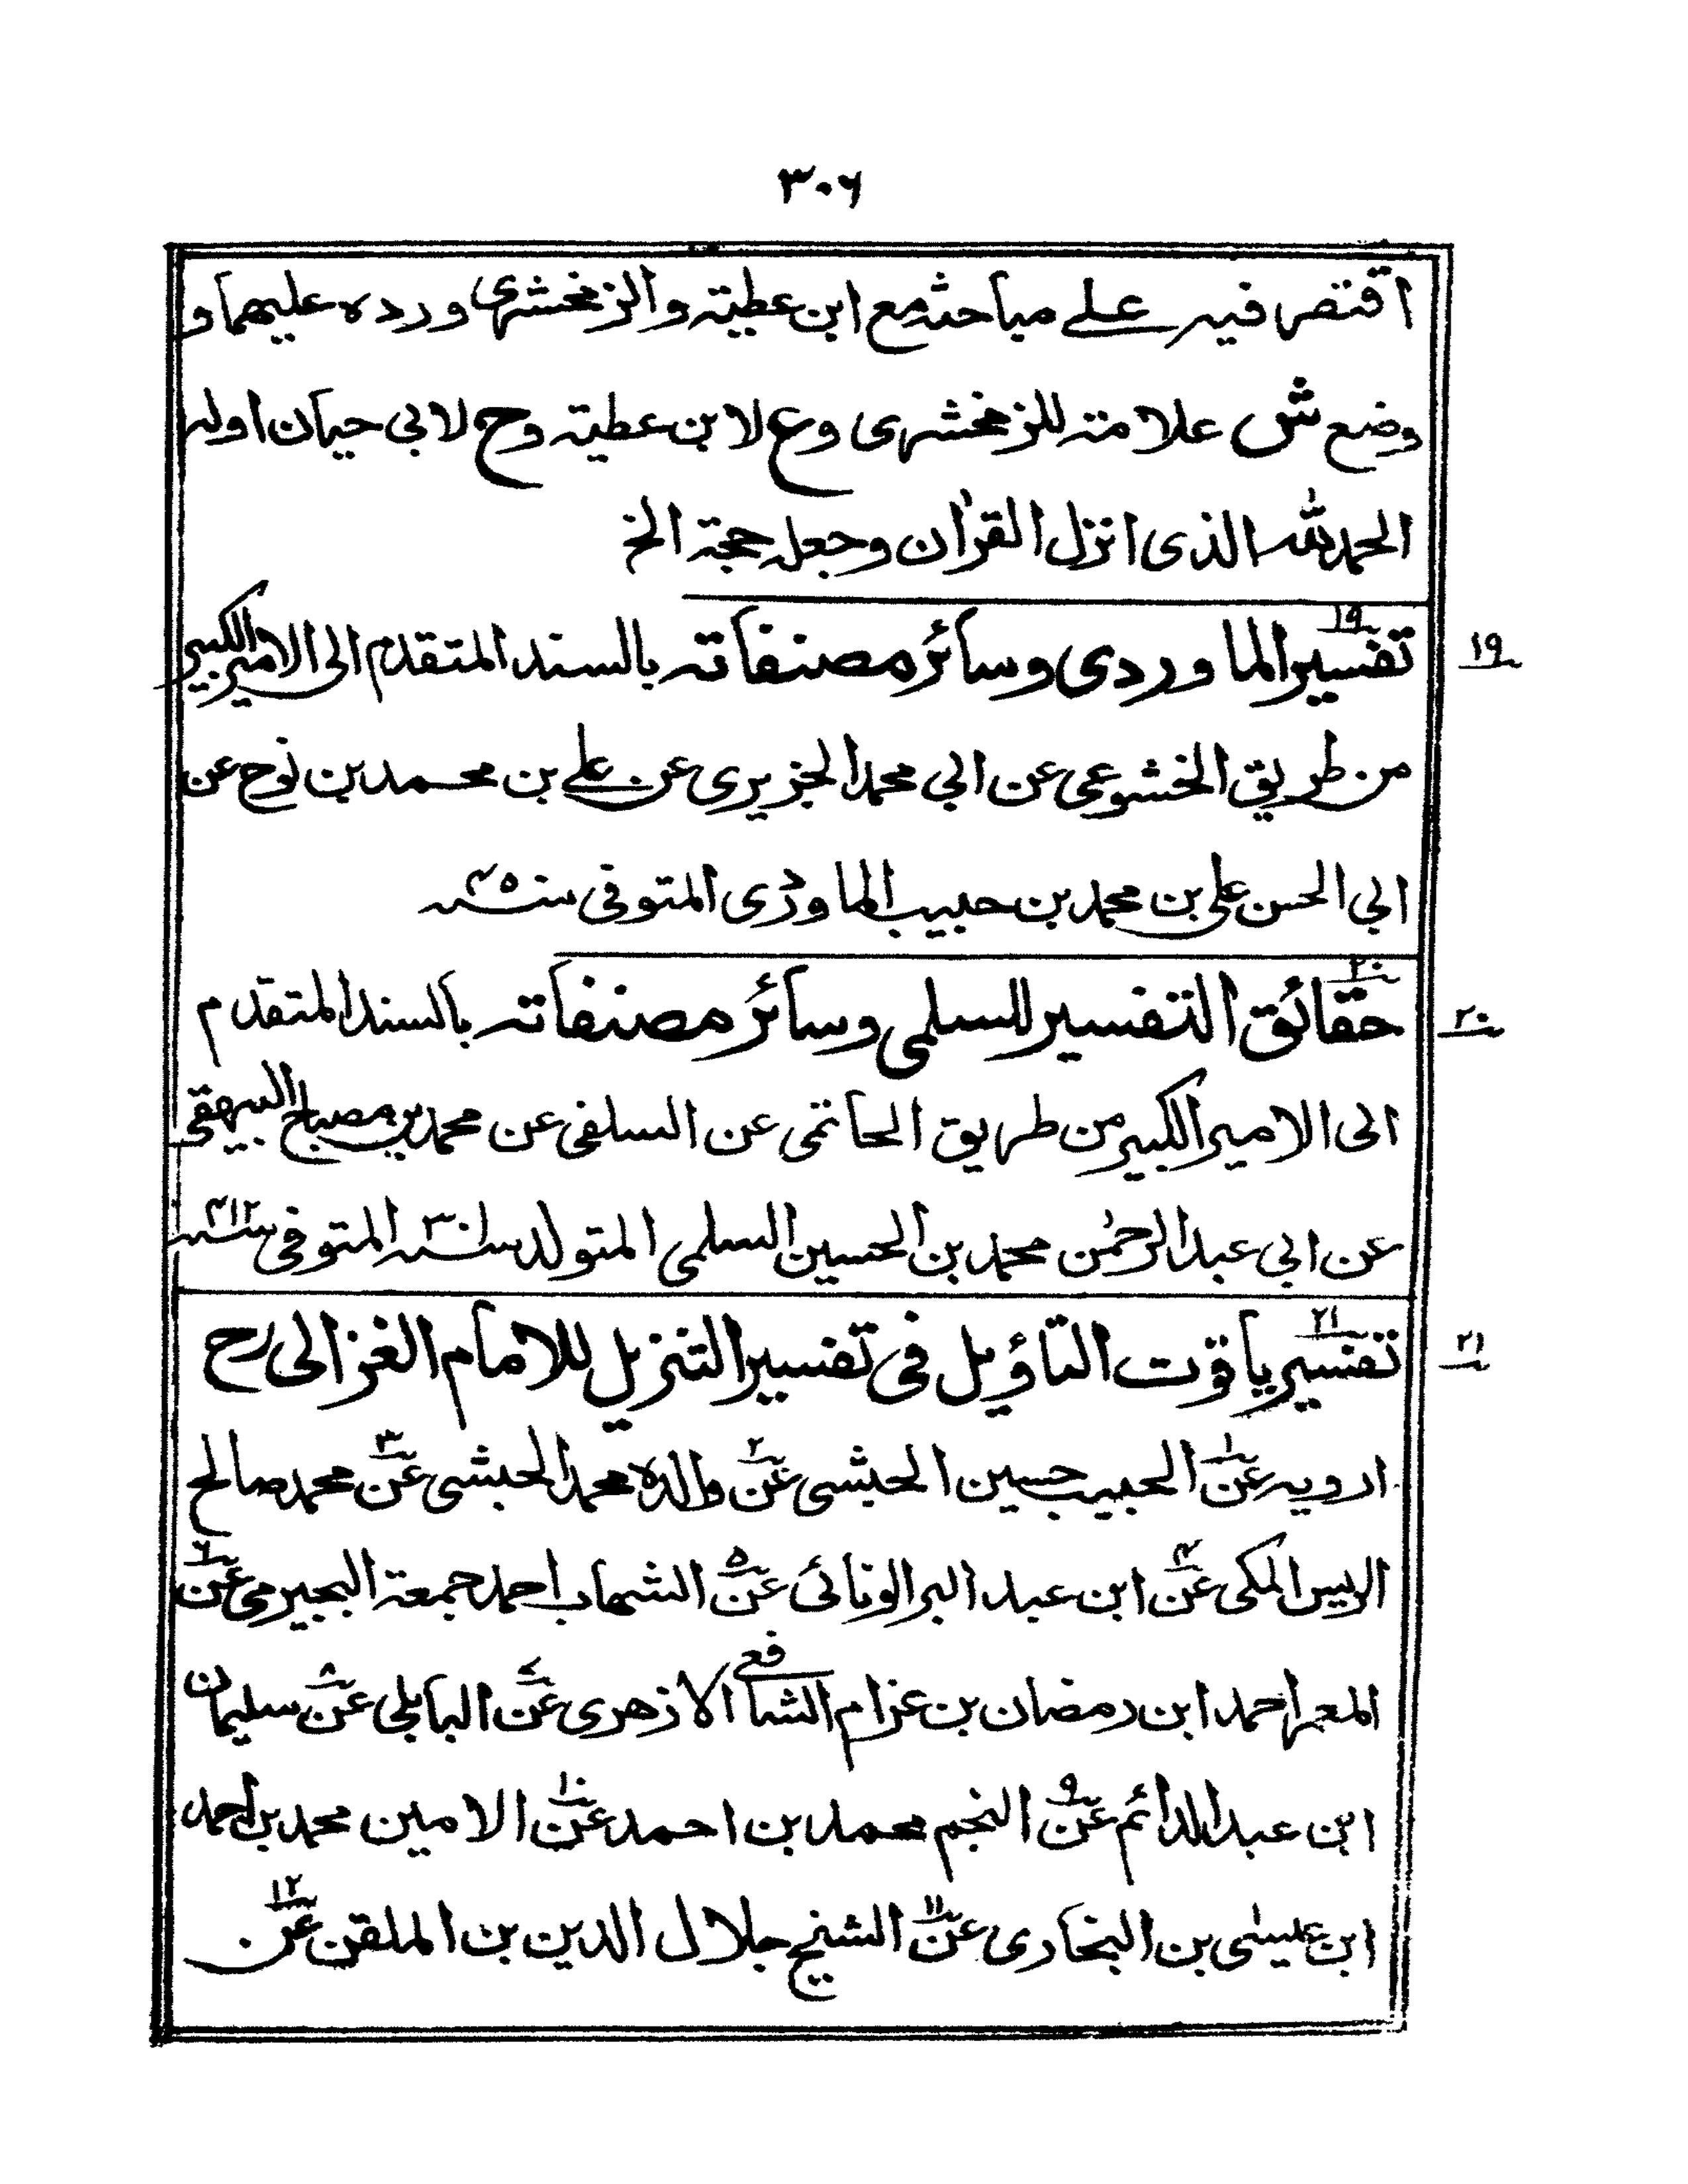 ٣٠٦
اقتصر فيه على مباحثه مع ابن عطية والزمخشرى ورده عليهما و
وضع ش علامة للزمخشرى وع لابن عطية وح لابي حيان اوله
الحمد لله الذى انزل القرآن وجعله حجة الخ
١٩ تفسير الماوردى وسائر مصنفاته بالسند المتقدم الى الامير الكبير
من طريق الخشوعى عن ابي محمد الجزيرى عن على بن محمد بن نوح عن
ابي الحسن على بن محمد بن حبيب الماوردى المتوفى سنه
٢٠ حقائق التفسير للسلمى وسائر مصنفاته بالسند المتقدم
الى الامير الكبير من طريق الحاتمى عن السلفى عن محمد بن مصباح البيهقى
عن ابي عبد الرحمٰن محمد بن الحسين السلمى المتولد سنه المتوفى سنه ٤١٢
٢١ تفسير ياقوت التاؤيل فى تفسير التنزيل للامام الغزالى رح
ارويه عن ١ الحبيب حسين الحبشى عن ٢ والده محمد الحبشى عن ٣ محمد صالح
الريس المكى عن ٤ ابن عبد البر الونائى عن ٥ الشهاب احمد جمعة البجيرمى عن ٦
المعمر احمد ابن رمضان بن عزام الشافعى الازهرى عن ٧ البابلى عن ٨ سليمان
ابن عبد الدائم عن ٩ النجم محمد بن احمد عن ١٠ الامين محمد بن احمد
ابن عيسٰى بن البخارى عن ١١ الشيخ جلال الدين بن الملقن عن ١٢